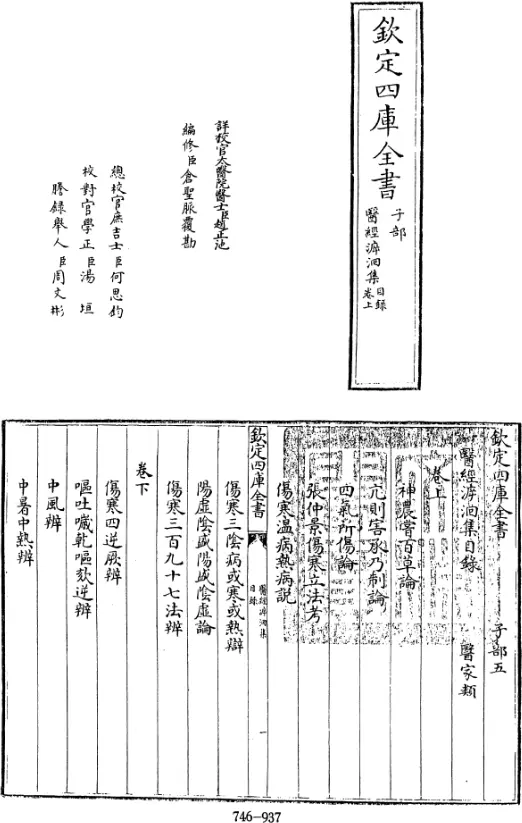 欽定四庫全書
子部
醫經溯洄集目錄
卷上
詳校官太醫院醫士臣趙正池
編修臣倉聖脈覆勘
總校官庶吉士臣何思鈞
校對官學正臣湯垣
謄錄舉人臣周文彬
欽定四庫全書 子部五
醫經溯洄集目錄 醫家類
卷上
神農嘗百草論
亢則害承乃制論
四氣所傷論
張仲景傷寒立法考
傷寒溫病熱病說
欽定四庫全書
醫經溯洄集
目錄
傷寒三陰病或寒或熱辯
陽虛陰盛陽盛陰虛論
傷寒三百九十七法辨
卷下
傷寒四逆厥辨
嘔吐噦乾嘔欬逆辨
中風辨
中暑中熱辨
746-937